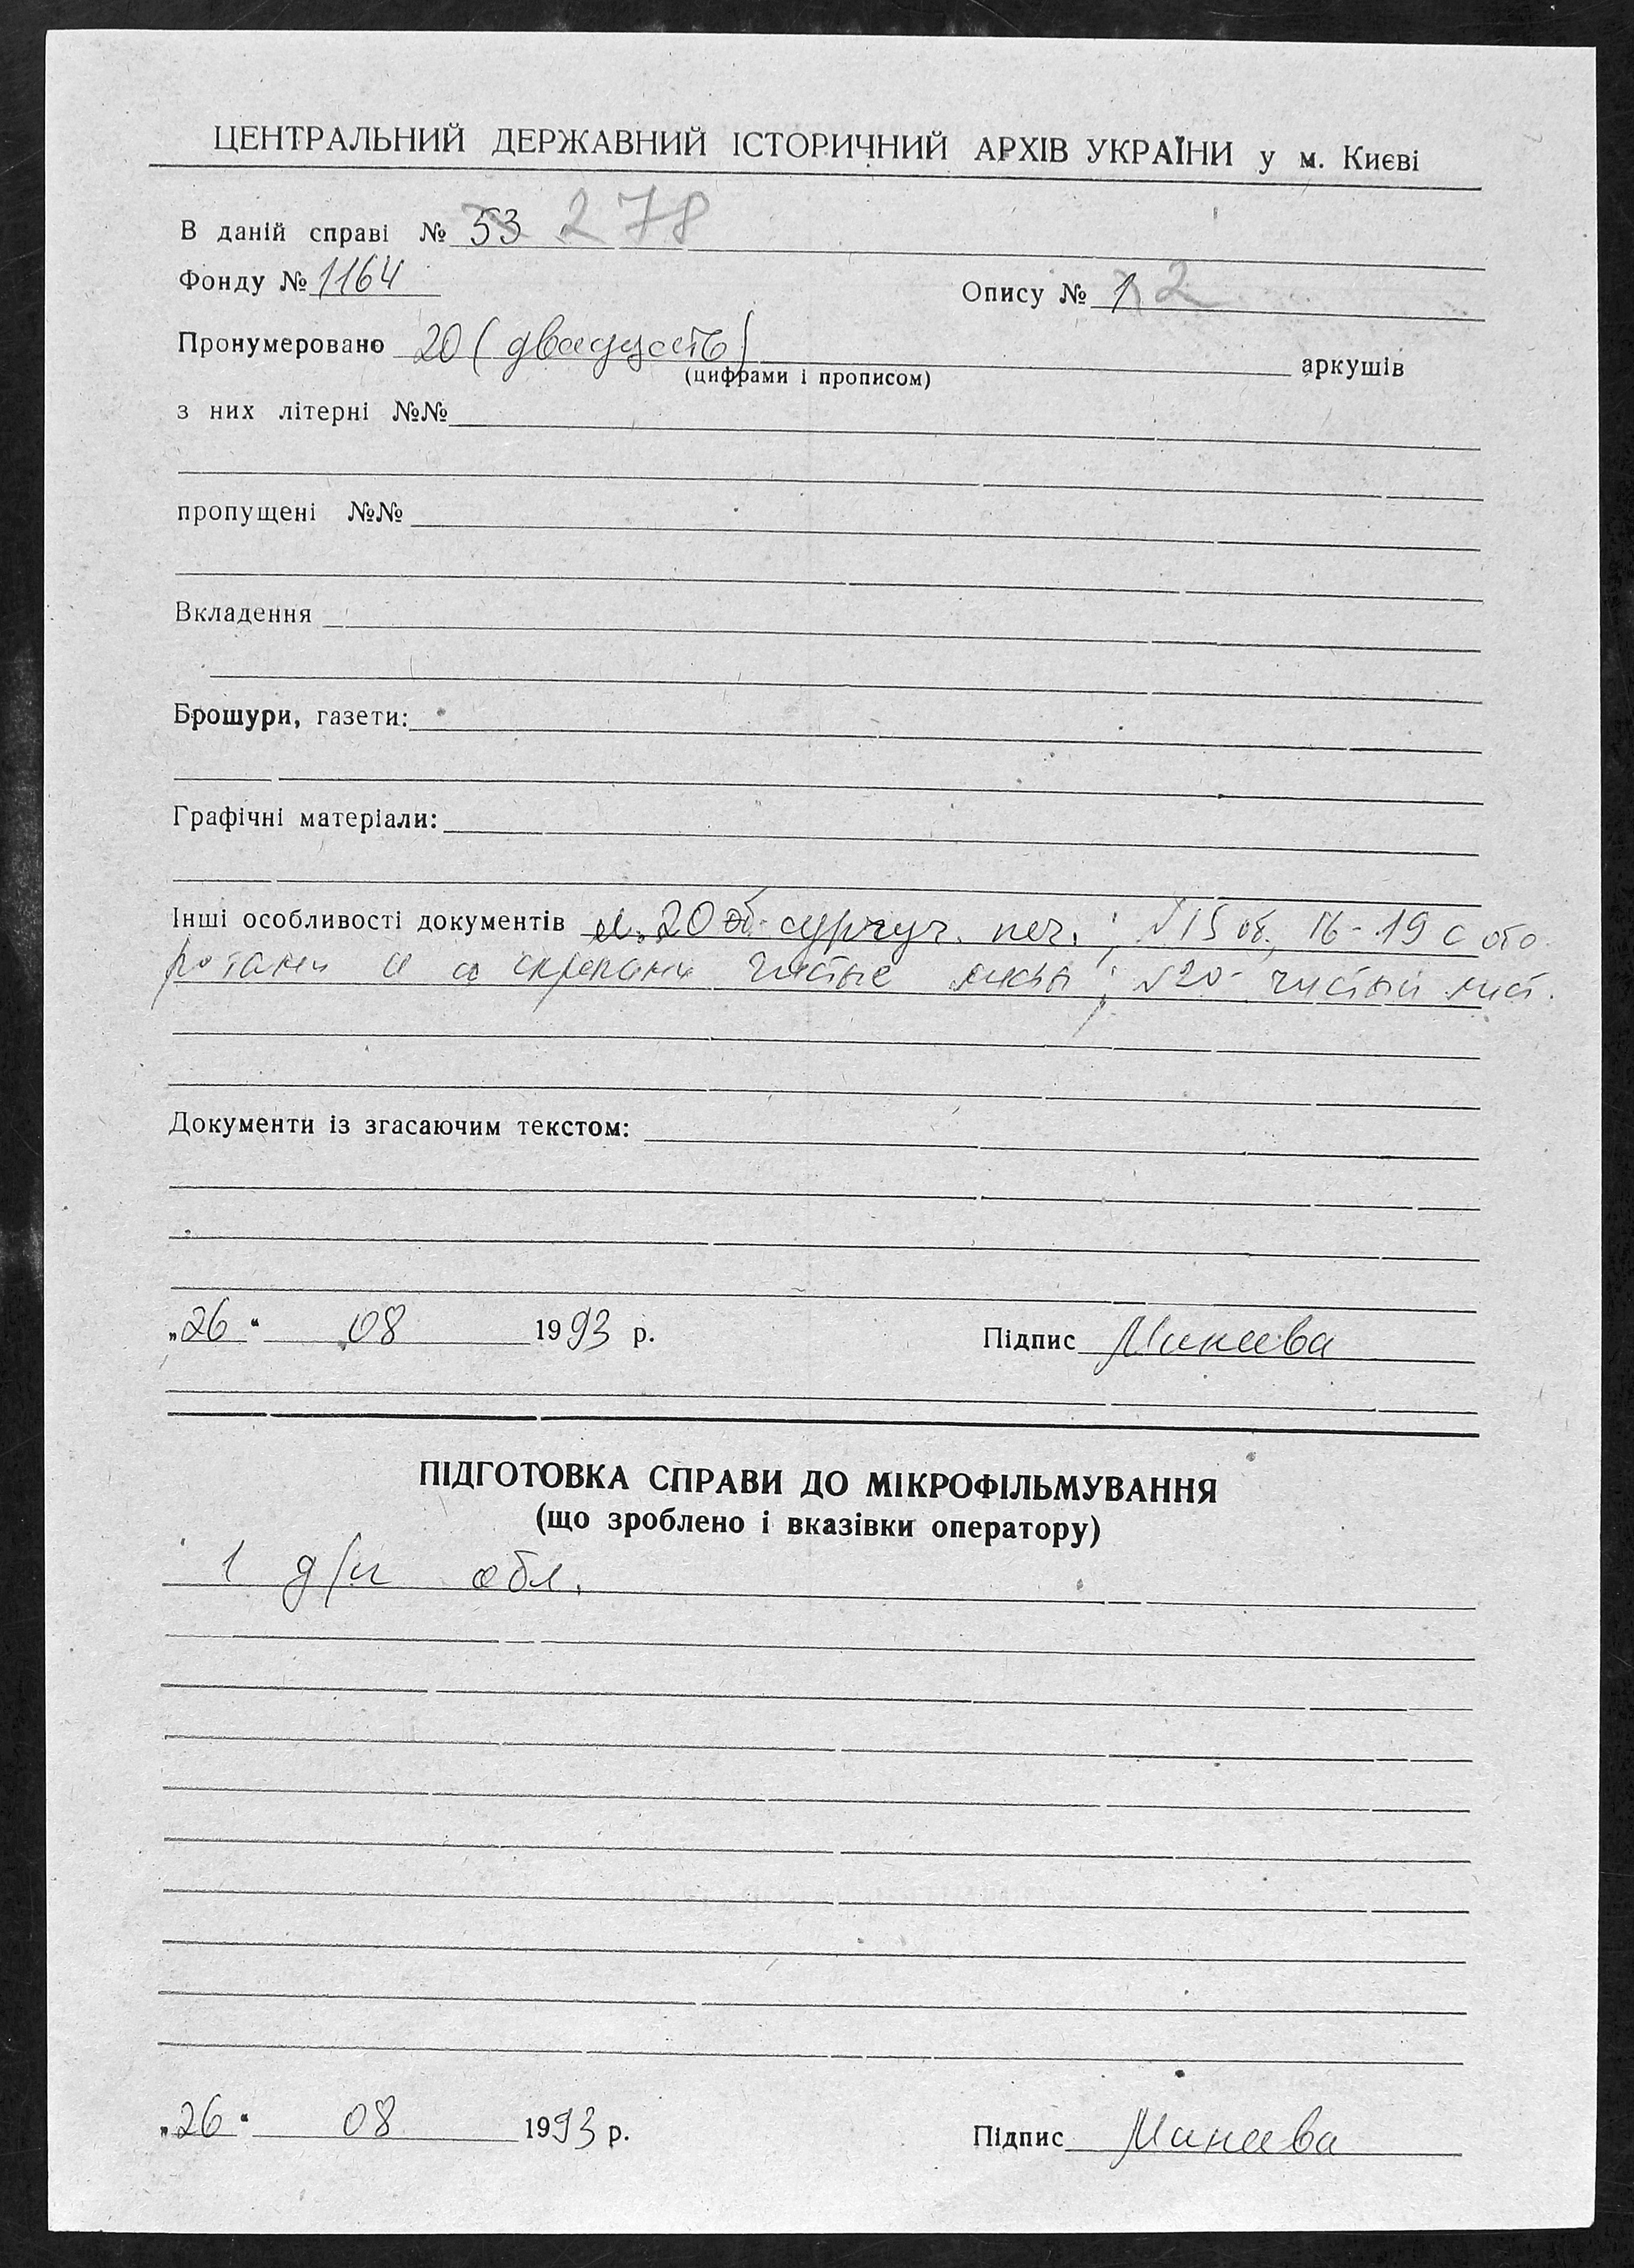 ЦЕНТРАЛЬНИЙ ДЕРЖАВНИЙ ІСТОРИЧНИЙ АРХІВ УКРАЇНИ у м. Києві
В даній справі № 53 278
Фонду № 1164 Опису № 1 2
Пронумеровано 20 (двадцать) аркушів
(цифрами і прописом)
з них літерні №№
пропущені №№
Вкладення
Брошури, газети:
Графічні матеріали:
Інші особливості документів л. 20 об. сургуч. печ.; л 15 об., 16-19 с обо-
ротами и со скрепами чистые листы; л 20 - чистый лист.
Документи із згасаючим текстом:
„26“ 08 1993 р. Підпис Минеева
ПІДГОТОВКА СПРАВИ ДО МІКРОФІЛЬМУВАННЯ
(що зроблено і вказівки оператору)
1 д/н обл.
„26“ 08 1993 р. Підпис Минеева